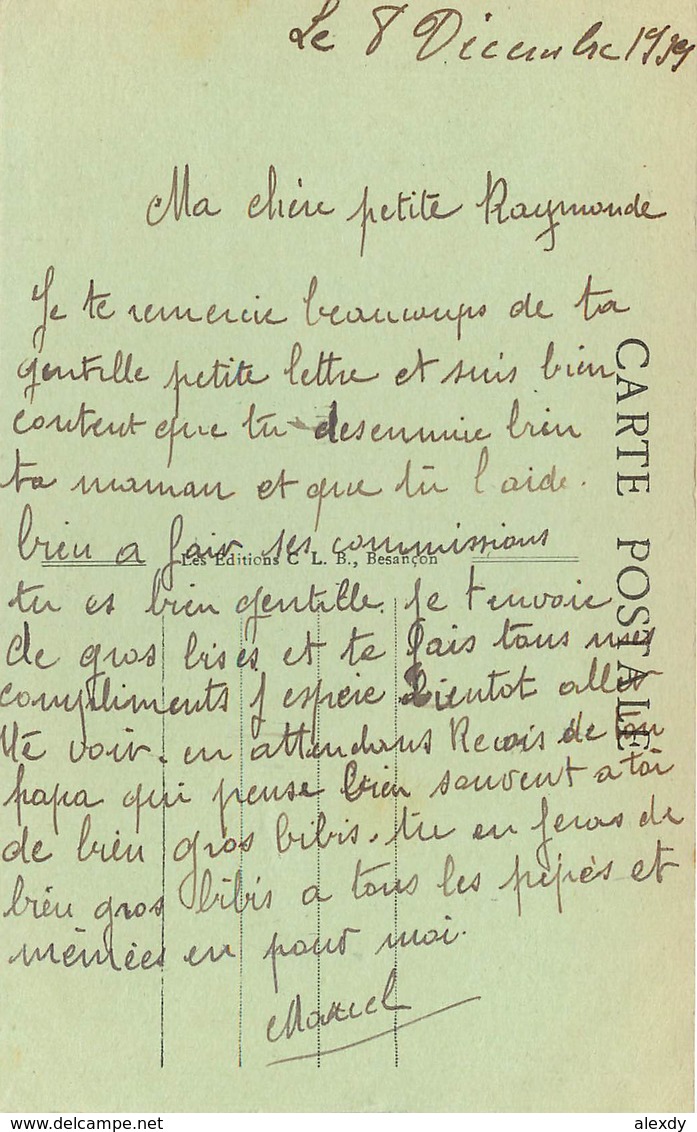 Le 8 Décembre 1939
Ma chère petite Raymonde
Je te remercie beaucoups de ta
gentille petite lettre et suis bien
content que tu desennuie bien
ta maman et que tu l'aide.
bien a fair ses commissions
Les Editions C L. B., Besançon
tu es bien gentille. Je t envoie
de gros bises et te fais tous mes
compliments j espère bientot aller
te voir. en attendans Recois de ton
papa qui pense bien souvent a toi
de bien gros bibis. tu en feras de
bien gros bibis a tous les pépés et
mémées en pour moi.
Marcel
CARTE POSTALE
delcampe.net
alexdy